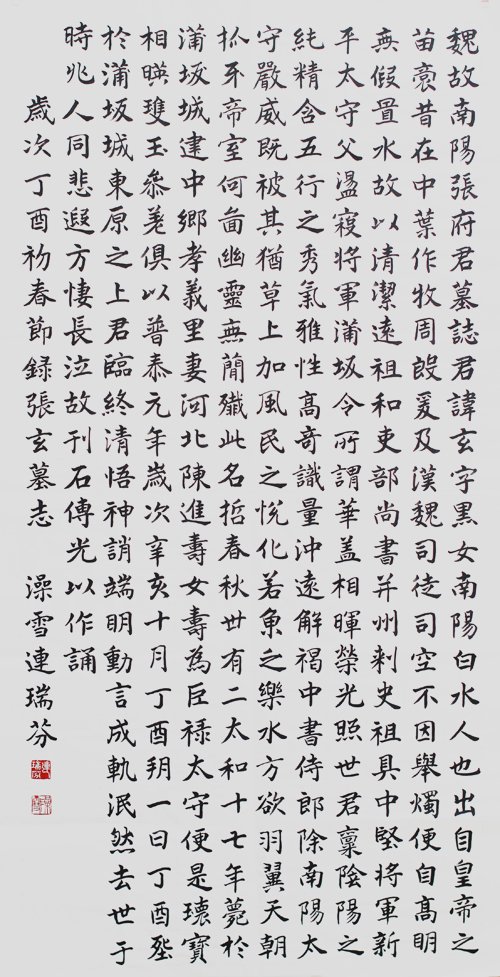 魏故南陽張府君墓誌君諱玄字黑女南陽白水人也出自皇帝之
苗裔昔在中葉作牧周殷爰及漢魏司徒司空不因舉燭便自高明
無假置水故以清潔遠祖和吏部尚書并州刺史祖具中堅將軍新
平太守父盪寇將軍蒲坂令所謂華蓋相暉榮光照世君稟陰陽之
純精含五行之秀氣雅性高奇識量沖遠解褐中書侍郎除南陽太
守嚴威既被其猶草上加風民之悅化若魚之樂水方欲羽翼天朝
抓牙帝室何啚幽靈無簡殲此名哲春秋卅有二太和十七年薨於
蒲坂城建中鄉孝義里妻河北陳進壽女壽為巨祿太守便是瓌寶
相暎瓊玉參差俱以普泰元年歲次辛亥十月丁酉朔一日丁酉塟
於蒲坂城東原之上君臨終清悟神誚端明動言成軌泯然去世于
時兆人同悲遐方悽長泣故刊石傳光以作誦
歲次丁酉初春節錄張玄墓志 澡雪連瑞芬